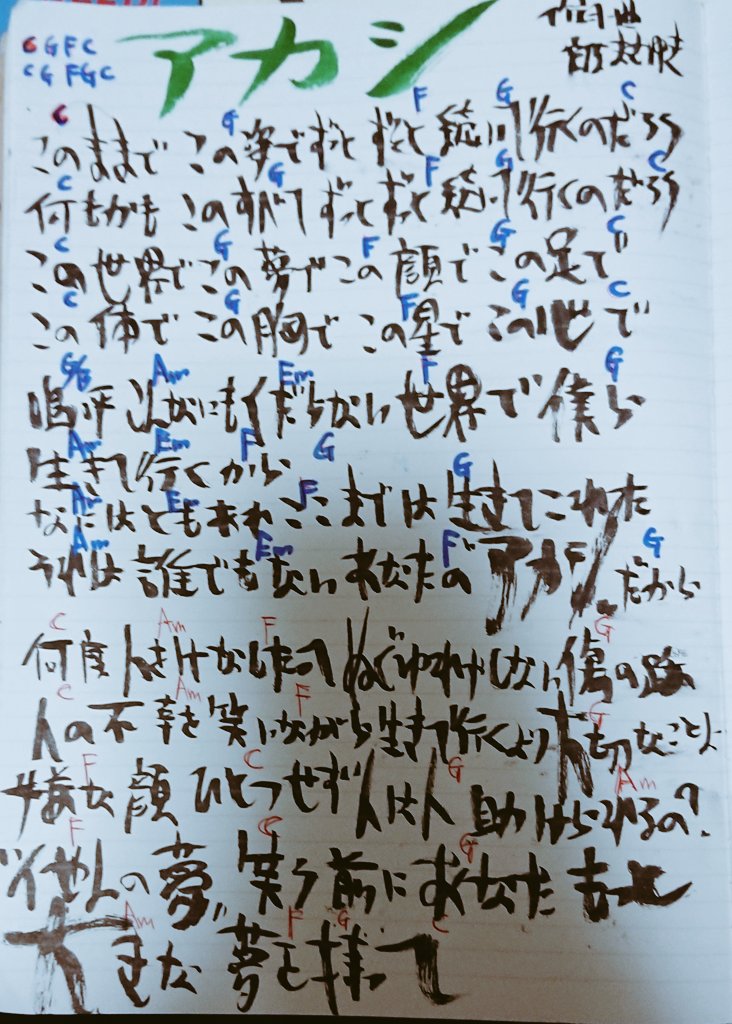 作詞曲
アカシ
C G F C
C G F G C
C G F G C
このままで この姿で ずっと ずっと 続いて行くのだろう
C G F G C
何もかも このすべて ずっと ずっと 続いて行くのだろう
C G F G C
この世界で この夢で この顔で この足で
C G F G C
この体で この胸で この星で この地で
Am Em F G
嗚呼 こんなにもくだらない世界で僕ら
Am Em F G
生きて行くから
Am Em F G
なにはともあれ ここまでは 生きてこれた
Am Em F G
それは誰でもない あなたの アカシ だから
C Am F G
何度人をけなしたって ぬぐいきれやしない傷の跡
C Am F G
人の不幸を笑いながら生きて行くより大切なことは
F C G Am
嫌な顔ひとつせず 人は人 助けられるの?
F C G
"ソイやんの夢" 笑う前に まずあなた もっと
Am F G C
大きな夢を持って